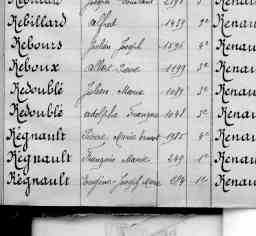 Rebillard Alfred 1439 3e Renau
Rebours Julien Joseph 1596 4e Renau
Reboux Albert 1149 3e Renau
Redoublé Julien Marie 1089 3e Renau
Redoublé Adolphe François 1048 3e Renau
Régnault Pierre Marie 1985 4e Renau
Régnault François Marie 249 1e Renau
Régnault Eugène Joseph Marie 1e Renau